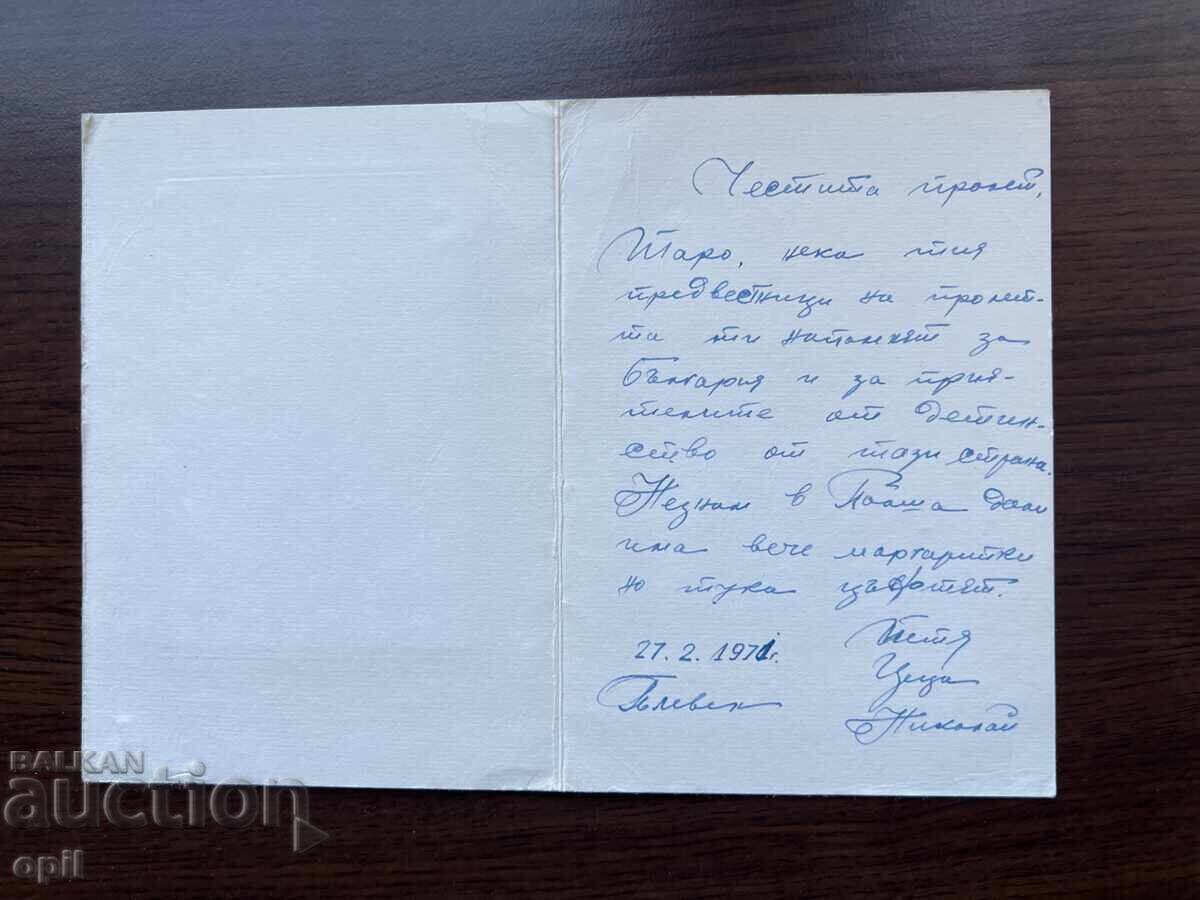 Честита пролет,
Таро, нека тия
предвестници на пролет-
та ти напомнят за
България и за прия-
телите от детин-
ство от тази страна.
Незнам в Полша дали
има вече маргаритки
но тука цъфтят.
27.2.1971г.
Плевен
Петя
Цеца
Николай
BALKAN
auction
opil